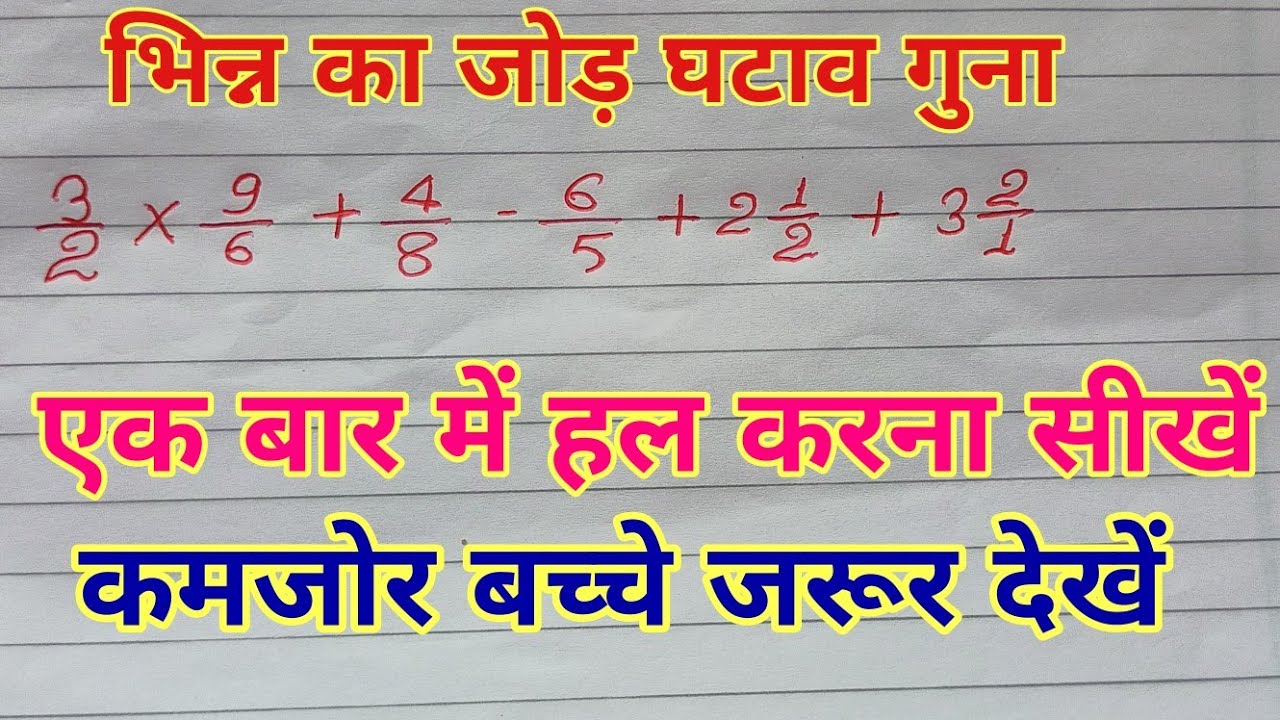 भिन्न का जोड़ घटाव गुना
3/2 × 9/6 + 4/8 - 6/5 + 2 1/2 + 3 2/1
एक बार में हल करना सीखें
कमजोर बच्चे जरूर देखें